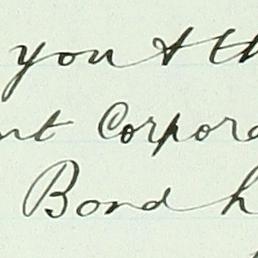 you & th
nt Corpora
Bond h